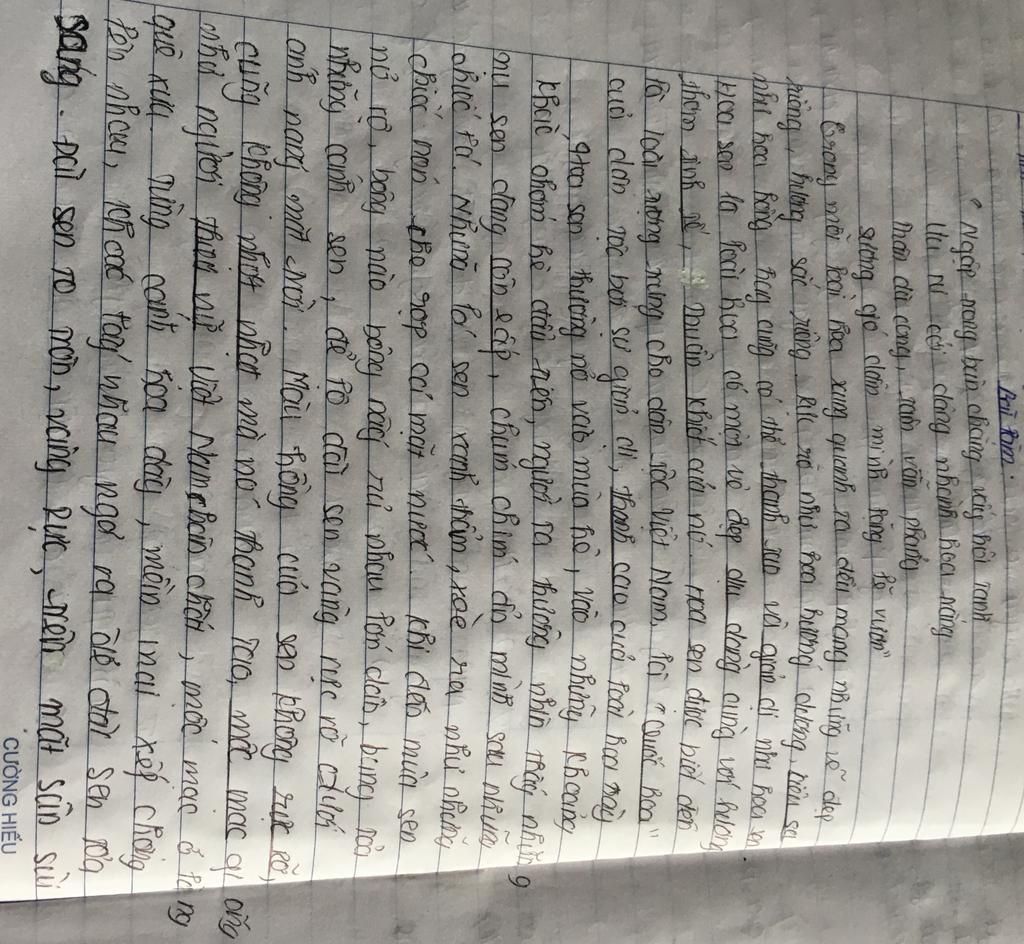 Bài làm.
"Ngập trong bùn chẳng vẩy hôi tanh
Ưu tư cởi đóng nhành hoa nắng
Thân dù cong, tâm vẫn phẳng
Sương gió dầm mình tỏng vũ vươn"
Trong mỗi loài hoa xung quanh ta đều mang những vẻ đẹp
riêng, hương sắc riêng. Rực rỡ như hoa hướng dương, kiêu sa
như hoa hồng hay cũng có thể thanh tao và giản dị như hoa sen
Hoa sen là loài hoa có một vẻ đẹp dịu dàng cùng với hương
thơm tinh tế, thuần khiết của nó. Hoa sen được biết đến
là loài tượng trưng cho dân tộc Việt Nam, là "Quốc hoa"
của dân tộc bởi sự giản dị, thanh cao của loài hoa này
Hoa sen thường nở vào mùa hè, vào những khoảng
khắc chớm hè đầu tiên, người ta thường nhìn thấy những
nụ sen đang còn e ấp, chúm chím đỏ mình sau những
chiếc lá. Những lá sen xanh thẫm, xòe ra như những
chiếc nón che rợp cả mặt nước. Khi đến mùa sen
nở rộ, bông nào bông nấy rủ nhau lớn dần, bung tỏa
những cánh sen, để lộ đài sen vàng rực rỡ dưới
ánh nắng mặt trời. Màu hồng của sen không rực rỡ,
cũng không nhợt nhạt mà nó thanh tao, mộc mạc giống
như người thiếu nữ Việt Nam chân chất, mộc mạc ở làng
quê xưa. Từng cánh hoa dày, mềm mại xếp chồng
lên nhau, khoác tay nhau ngả ra để đài sen tỏa
sáng. Đài sen to tròn, vàng rực, trên mặt sần sùi
CƯỜNG HIẾU